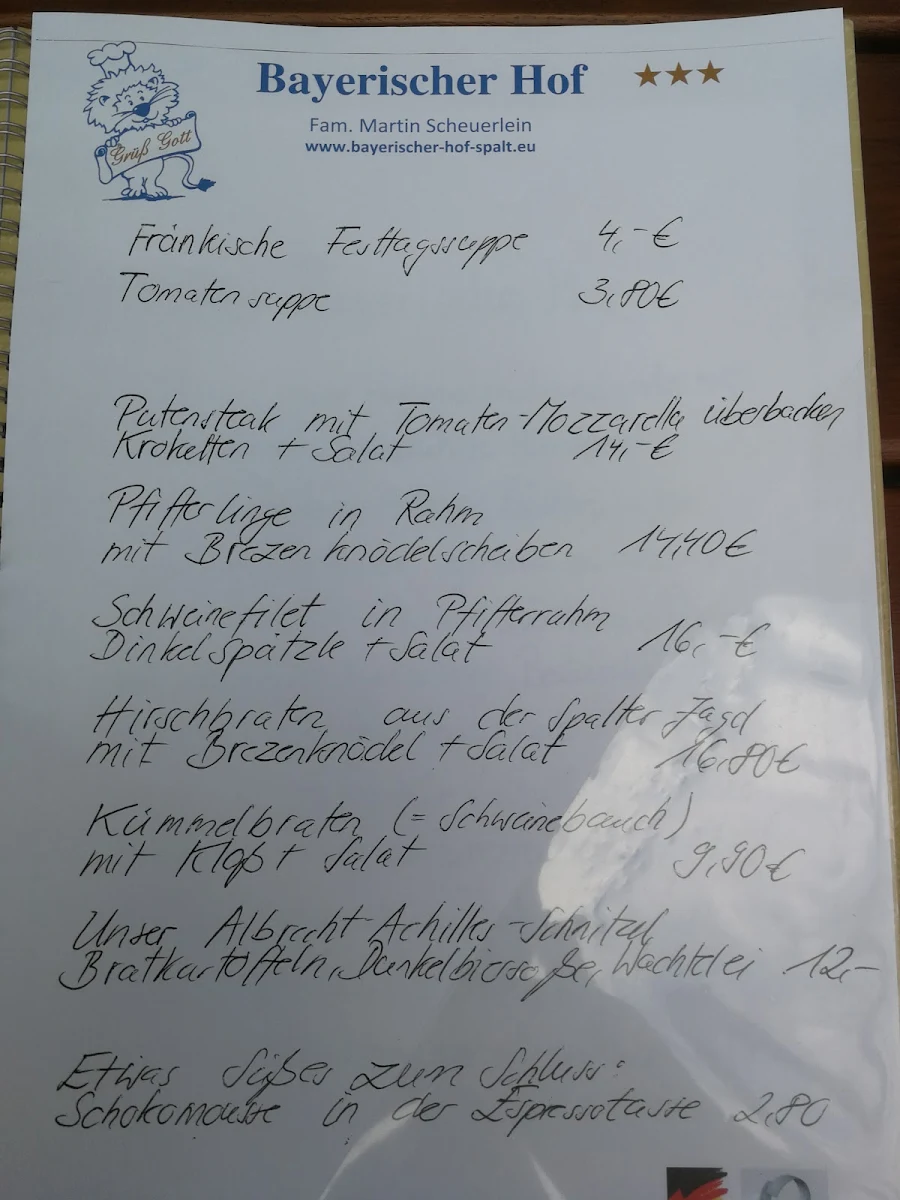 Grüß Gott
Bayerischer Hof
Fam. Martin Scheuerlein
www.bayerischer-hof-spalt.eu
Fränkische Festtagssuppe 4,-€
Tomatensuppe 3,80€
Putensteak mit Tomaten-Mozzarella überbacken
Kroketten + Salat 14,-€
Pfifferlinge in Rahm
mit Brezenknödelscheiben 14,40€
Schweinefilet in Pfifferrahm
Dinkelspätzle + Salat 16,-€
Hirschbraten aus der Spalter Jagd
mit Brezenknödel + Salat 16,80€
Kümmelbraten (= Schweinebauch)
mit Kloß + Salat 9,90€
Unser Albrecht-Achilles-Schnitzel
Bratkartoffeln, Dunkelbiersoße, Wachtelei 12,-
Etwas Süßes zum Schluss:
Schokomousse in der Espressotasse 2,80